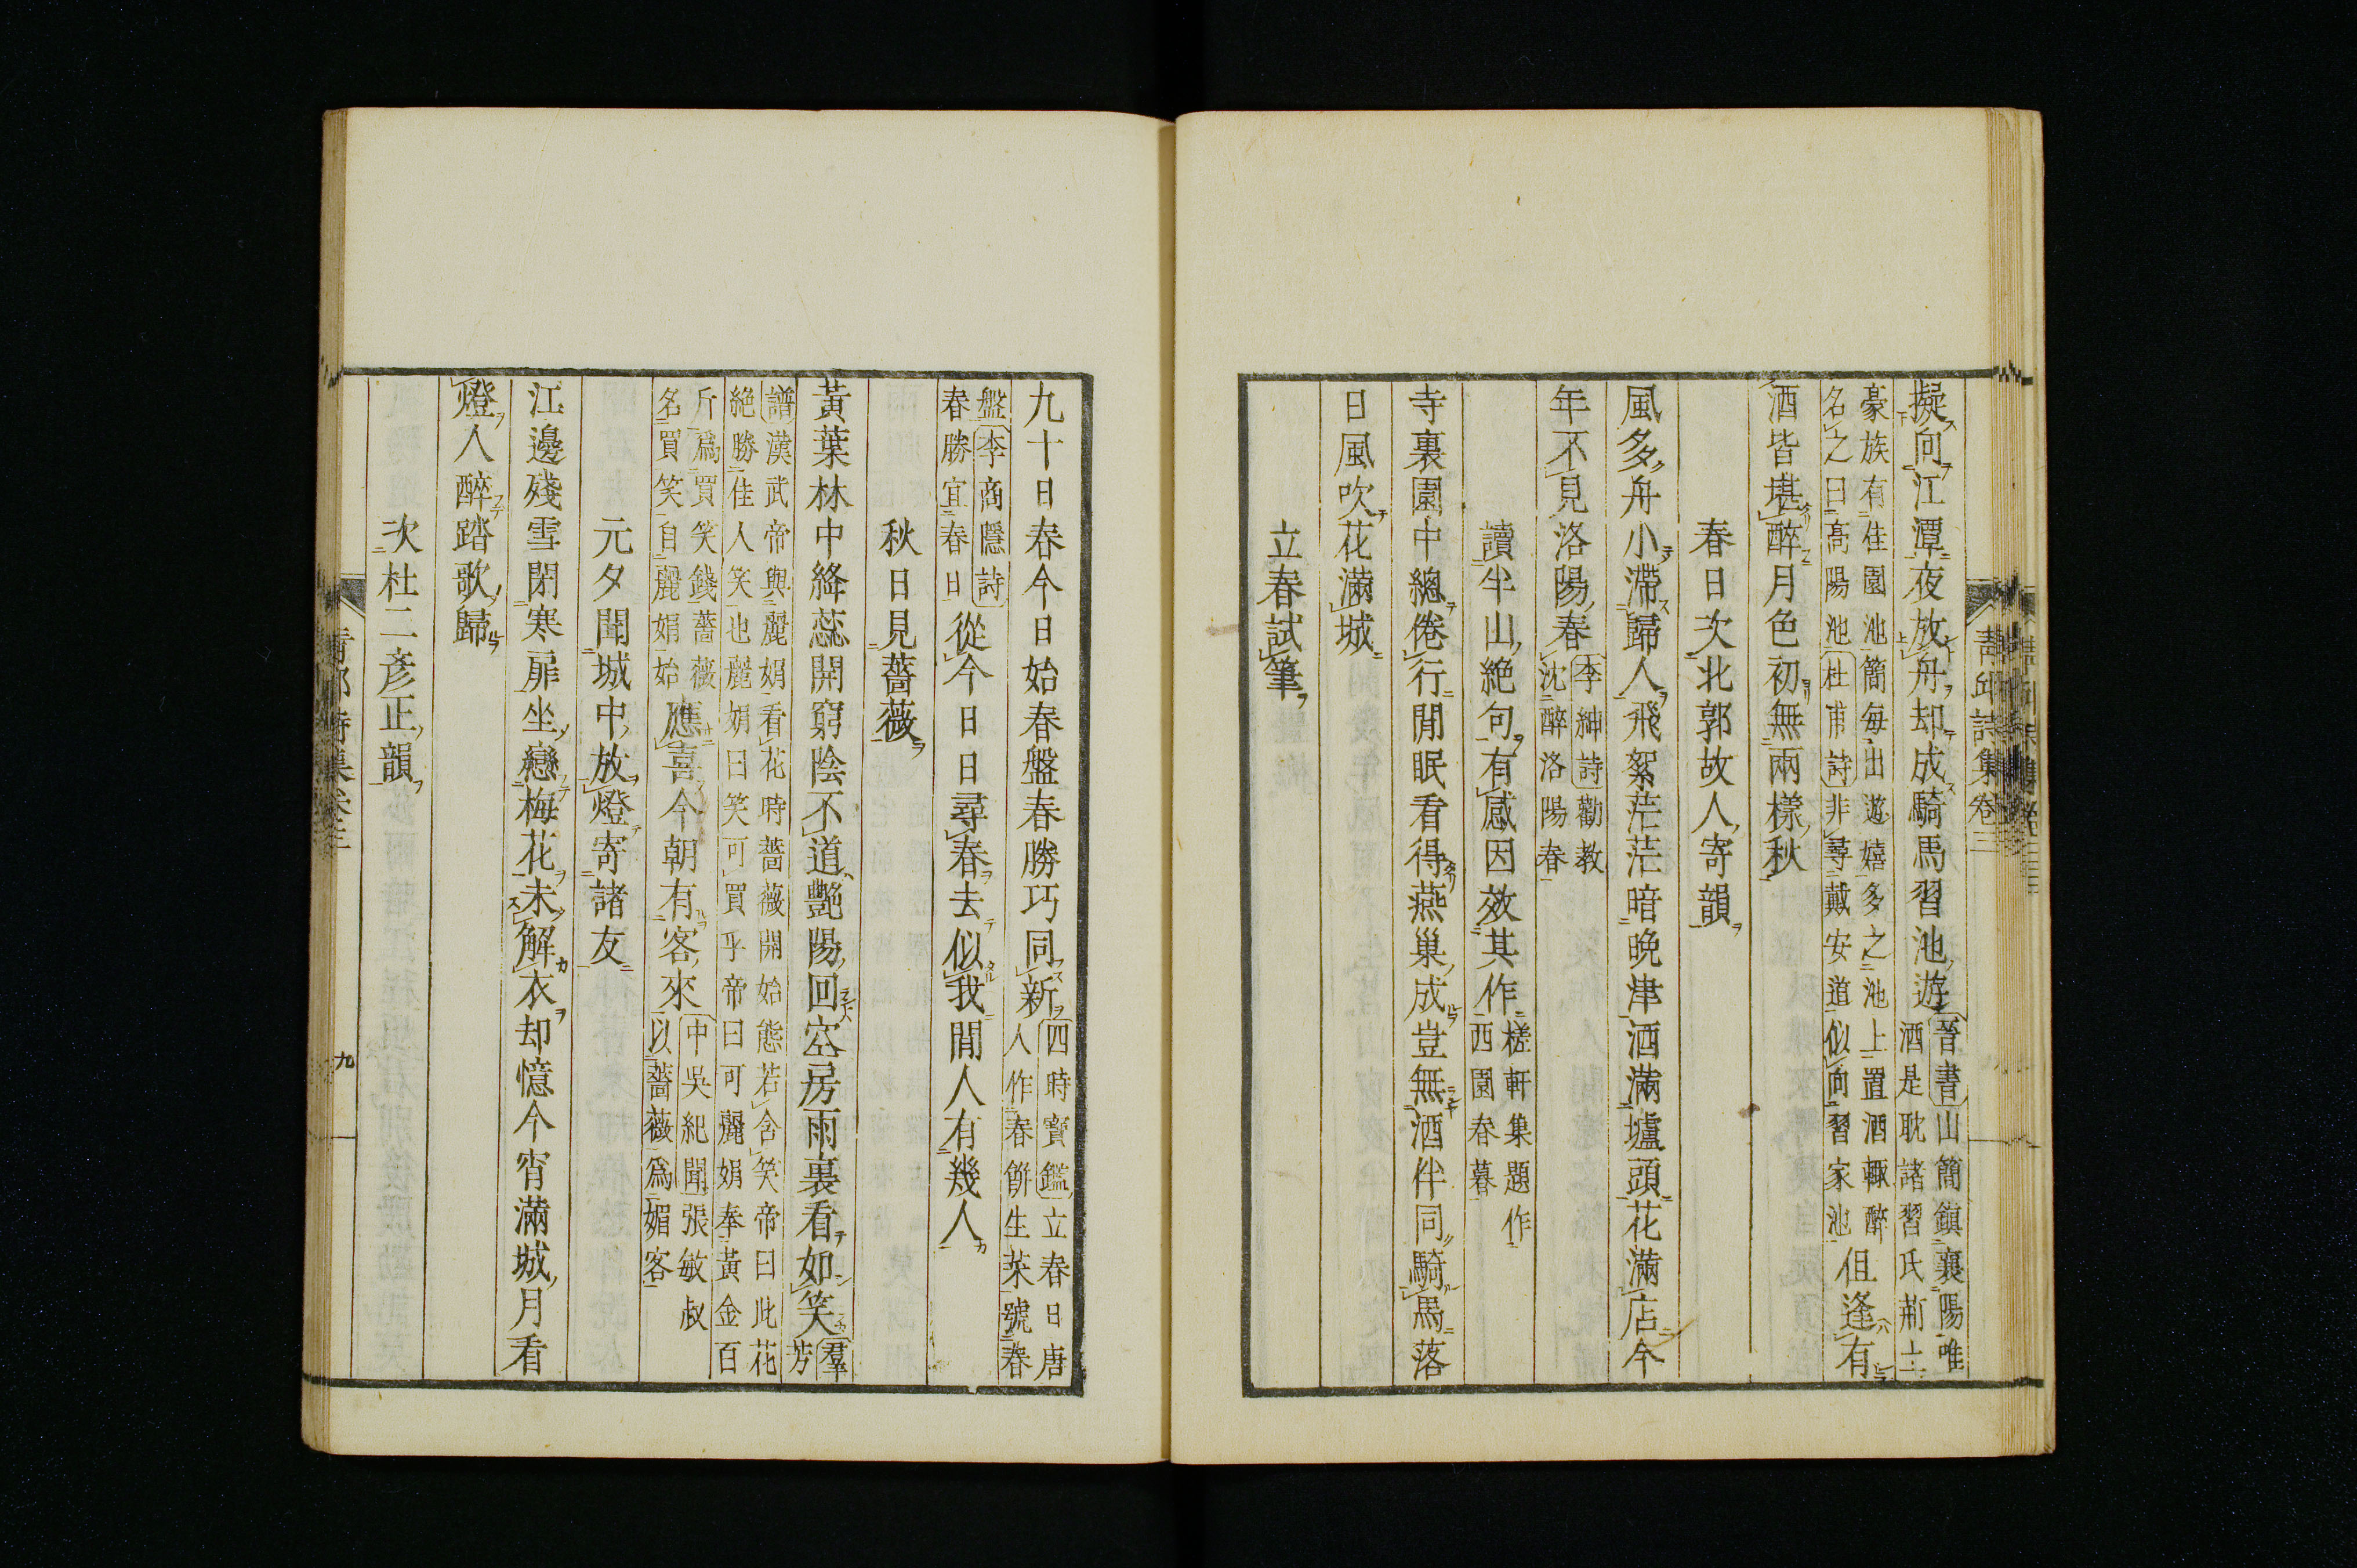 擬向江潭夜放舟却成騎馬習池遊晉書山簡鎮襄陽唯
酒是耽諸習氏荊土
豪族有佳園池簡每出遊嬉多之池上置酒輒醉
名之曰高陽池杜甫詩非尋戴安道似向習家池但逢有
酒皆堪醉月色初無兩樣秋
春日次北郭故人寄韻
風多舟小滯歸人飛絮茫茫暗晚津酒滿壚頭花滿店今
年不見洛陽春李紳詩勸教
沈醉洛陽春
讀半山絶句有感因效其作槎軒集題作
西園春暮
寺裏園中總倦行閒眠看得燕巢成豈無酒伴同騎馬落
日風吹花滿城
立春試筆
青邱詩集卷三
九十日春今日始春盤春勝巧同新四時寶鑑立春日唐
人作春餅生菜號春
盤李商隱詩
春勝宜春日從今日日尋春去似我閒人有幾人
秋日見薔薇
黃葉林中絳蕊開窮陰不道艷陽回空房雨裏看如笑羣
芳
譜漢武帝與麗娟看花時薔薇開始態若含笑帝曰此花
絶勝佳人笑也麗娟曰笑可買乎帝曰可麗娟奉黃金百
斤爲買笑錢薔薇
名買笑自麗娟始應喜今朝有客來中吳紀聞張敏叔
以薔薇爲媚客
元夕聞城中放燈寄諸友
江邊殘雪閉寒扉坐戀梅花未解衣却憶今宵滿城月看
燈人醉踏歌歸
次杜二彥正韻
九